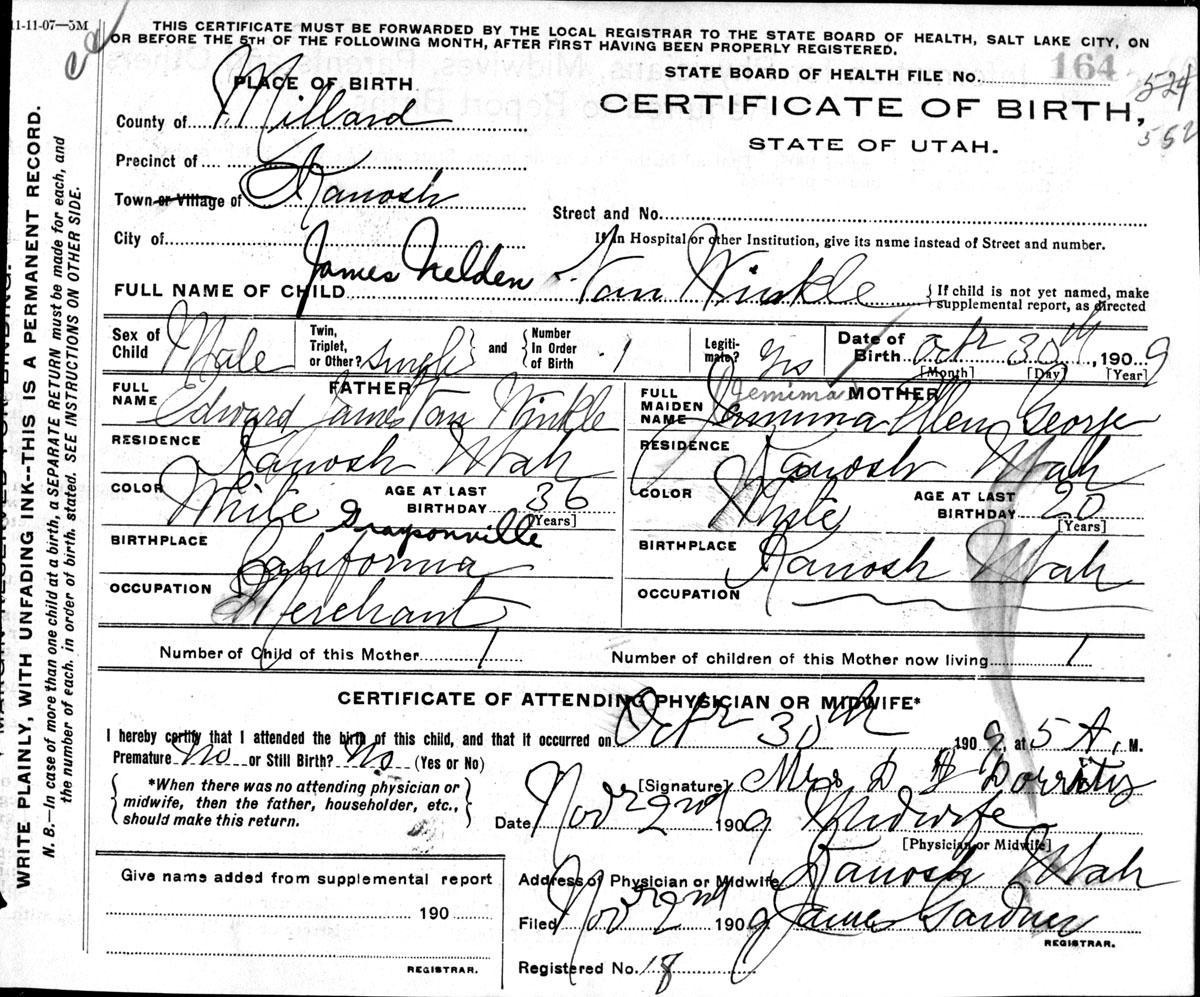 11-11-07—5M
THIS CERTIFICATE MUST BE FORWARDED BY THE LOCAL REGISTRAR TO THE STATE BOARD OF HEALTH, SALT LAKE CITY, ON
OR BEFORE THE 5TH OF THE FOLLOWING MONTH, AFTER FIRST HAVING BEEN PROPERLY REGISTERED.
STATE BOARD OF HEALTH FILE No. 164 524
552
PLACE OF BIRTH
CERTIFICATE OF BIRTH,
STATE OF UTAH.
County of Millard
Precinct of
Town or Village of Kanosh
Street and No.
City of
If in Hospital or other Institution, give its name instead of Street and number.
FULL NAME OF CHILD James Nelden Van Winkle
If child is not yet named, make
supplemental report, as directed
Sex of Child Male Twin, Triplet, or Other? Single and Number In Order of Birth 1 Legitimate? Yes Date of Birth Oct 30th, 1909
[Month] [Day] [Year]
FATHER
FULL NAME Edward James Van Winkle
RESIDENCE Kanosh Utah
COLOR White AGE AT LAST BIRTHDAY 36
[Years]
BIRTHPLACE Graysonville
California
OCCUPATION Merchant
MOTHER
Jemima
FULL MAIDEN NAME Jemima Ellen George
RESIDENCE Kanosh Utah
COLOR White AGE AT LAST BIRTHDAY 20
[Years]
BIRTHPLACE Kanosh Utah
OCCUPATION
Number of Child of this Mother 1 Number of children of this Mother now living 1
CERTIFICATE OF ATTENDING PHYSICIAN OR MIDWIFE*
I hereby certify that I attended the birth of this child, and that it occurred on Oct 30th 1909, at 5 A. M.
Premature No or Still Birth? No (Yes or No)
*When there was no attending physician or
midwife, then the father, householder, etc.,
should make this return.
[Signature] Mrs D Dorrity
Date Nov 2nd 1909 Midwife
[Physician or Midwife]
Address of Physician or Midwife Kanosh Utah
Filed Nov 2nd 1909 James Gardner
REGISTRAR.
Registered No. 18
Give name added from supplemental report
190
REGISTRAR.
WRITE PLAINLY, WITH UNFADING INK--THIS IS A PERMANENT RECORD.
N. B.—In case of more than one child at a birth, a SEPARATE RETURN must be made for each, and
the number of each, in order of birth, stated. SEE INSTRUCTIONS ON OTHER SIDE.